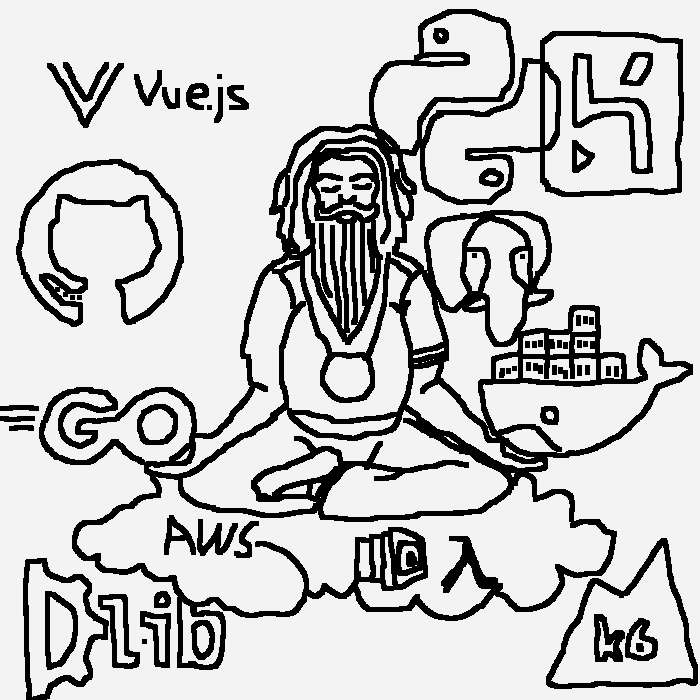 Vue.js
GO
AWS
λ
Dlib
k6